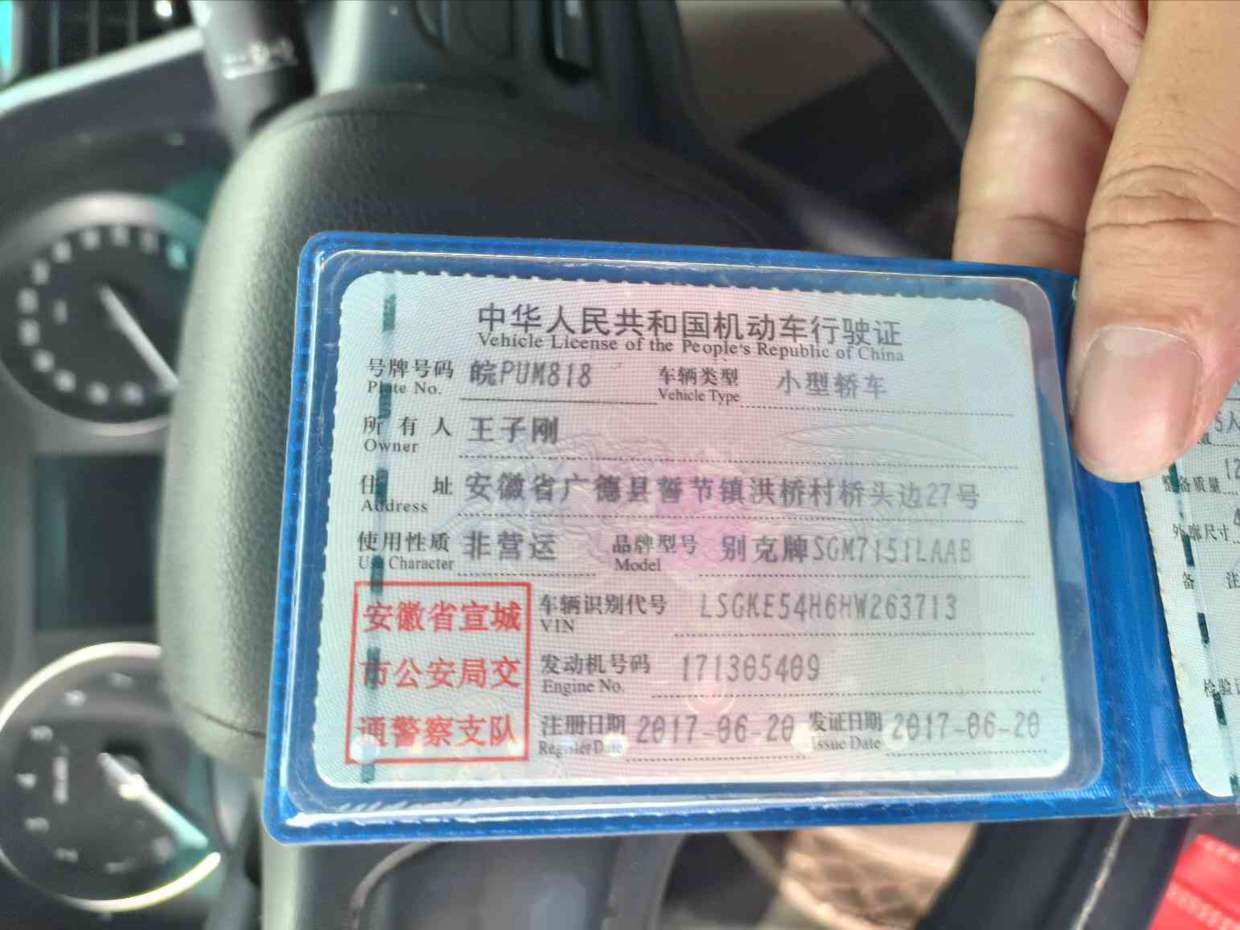 中华人民共和国机动车行驶证
Vehicle License of the People's Republic of China
号牌号码 皖PUM818 车辆类型 小型轿车
Plate No. Vehicle Type
所有人 王子刚
Owner
住址 安徽省广德县誓节镇洪桥村桥头边27号
Address
使用性质 非营运 品牌型号 别克牌SGM7151LAAB
Use Character Model
安徽省宣城
市公安局交
通警察支队
车辆识别代号 LSGKE54H6HW263713
VIN
发动机号码 171305409
Engine No.
注册日期 2017-06-20 发证日期 2017-06-20
Register Date Issue Date
5人
备质量 12
外廓尺寸 4
备 注
检验